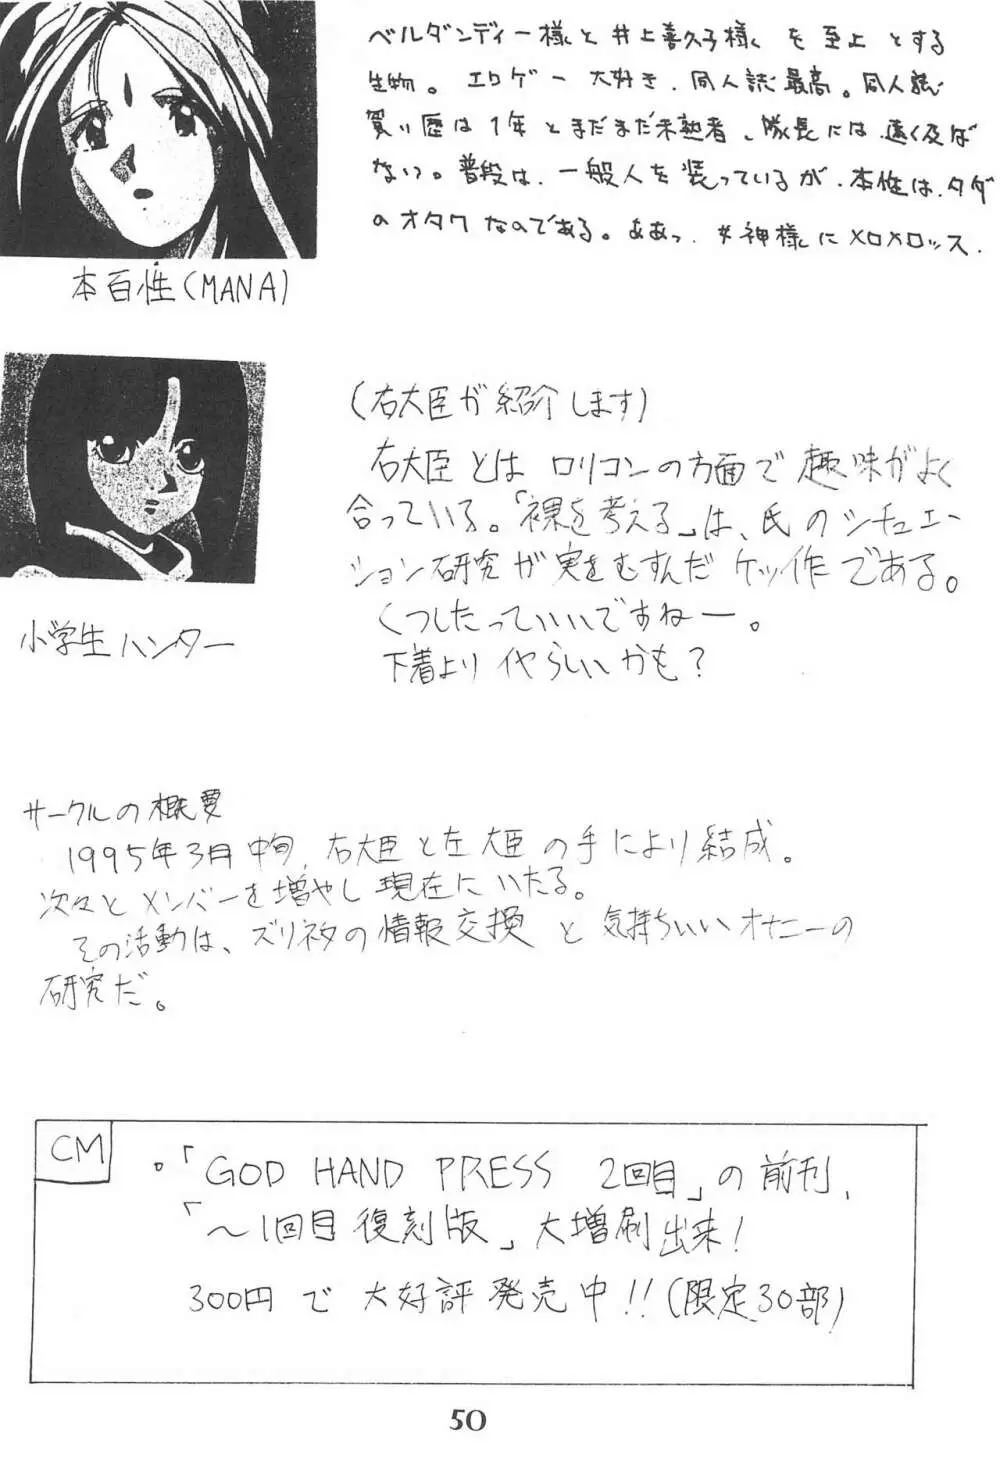 ベルダンディー様と井上喜久子様を至上とする
生物。エロゲー大好き、同人誌最高。同人誌
買い歴は1年とまだまだ未熟者、隊長には遠く及ば
ない。普段は、一般人を装っているが、本性は、タダ
のオタクなのである。ああっ、女神様にメロメロッス.
本百性(MANA)
(右大臣が紹介します)
右大臣とはロリコンの方面で趣味がよく
合っている。「裸を考える」は、氏のシチュエー
ション研究が実をむすんだケッ作である。
くつしたっていいですねー。
下着よりイヤらしいかも?
小学生ハンター
サークルの概要
1995年3月中旬、右大臣と左大臣の手により結成。
次々とメンバーを増やし現在にいたる。
その活動は、ズリネタの情報交換と気持ちいいオナニーの
研究だ。
CM
・「GOD HAND PRESS 2回目」の前刊、
「〜1回目復刻版」大増刷出来!
300円で大好評発売中!!(限定30部)
50